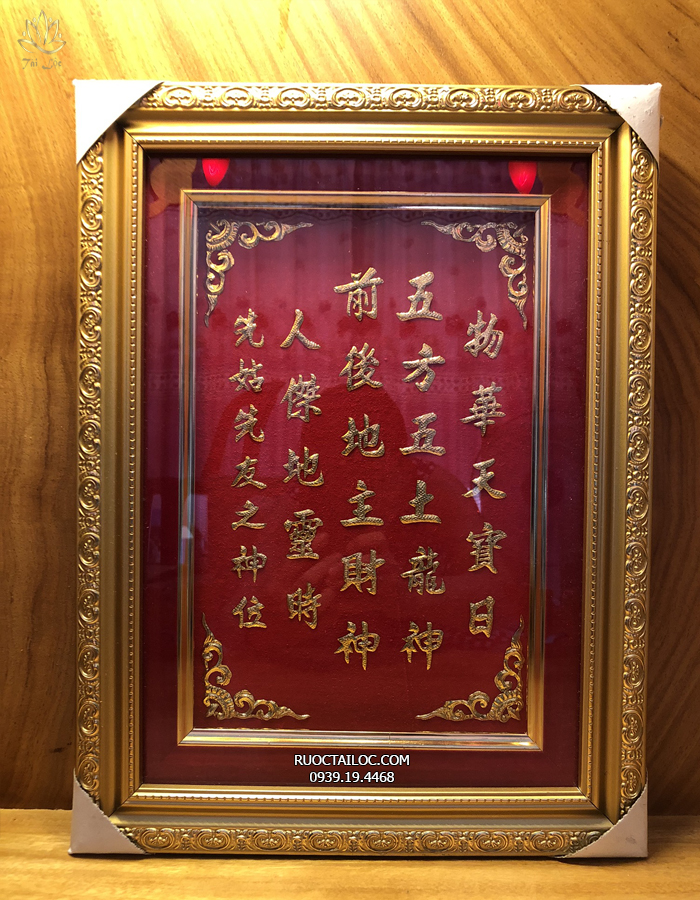 物華天寳日
五方五土龍神
前後地主財神
人傑地靈時
先姑先友之神位
RUOCTAILOC.COM
0939.19.4468